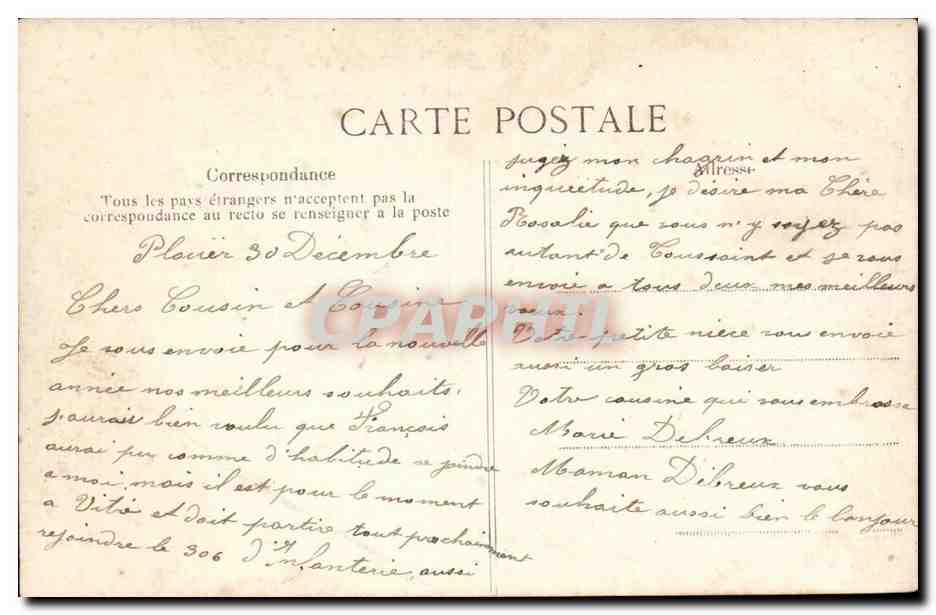 CARTE POSTALE
Correspondance
Tous les pays étrangers n'acceptent pas la
correspondance au recto se renseigner à la poste
Plouër 30 Décembre
Chers Cousin et Cousine
Je vous envoie pour la nouvelle
année nos meilleurs souhaits.
J'aurais bien voulu que François
aurai pu comme d'habitude se joindre
a moi, mais il est pour le moment
a Vitré et doit partir tout prochainement
rejoindre le 306 d'Infanterie, aussi
Adresse
jugez mon chagrin et mon
inquietude, je désire ma Chère
Rosalie que vous n'y soyez pas
autant de Toussaint et je vous
envoie a tous deux mes meilleurs
vœux.
Votre petite nièce vous envoie
aussi un gros baiser
Votre cousine qui vous embrasse
Marie Débreux
Maman Débreux vous
souhaite aussi bien le bonjour
CPAPHIL